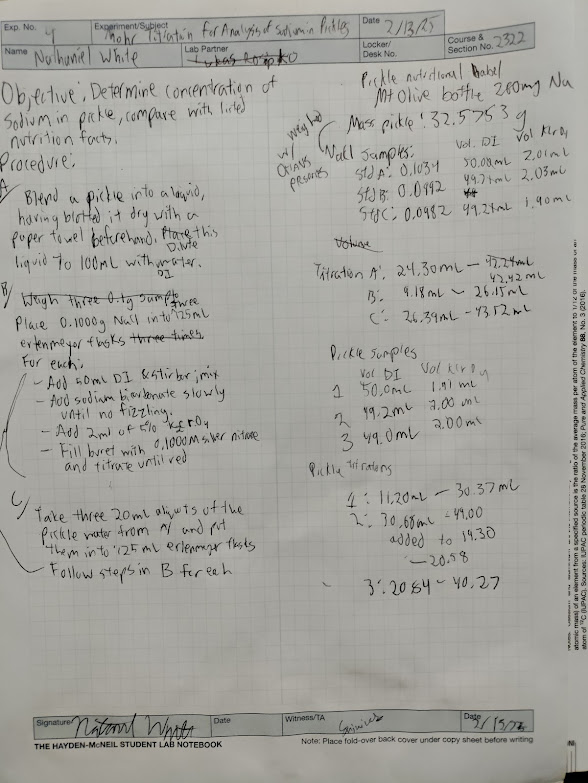 Exp. No. 4
Experiment/Subject Mohr Titration for Analysis of Sodium in Pickles
Date 2/13/25
Name Nathaniel White
Lab Partner
Locker/Desk No.
Course & Section No. 2322
Objective: Determine concentration of
sodium in pickle, compare with listed
nutrition facts.
Procedure:
A/ Blend a pickle into a liquid,
having blotted it dry with a
paper towel beforehand. Place this Dilute
liquid to 100mL with water. DI
B/ Weigh three 0.1g sample
Place 0.1000g NaCl into three 125mL
erlenmeyer flasks three times.
For each:
- Add 50mL DI & stirbar, mix
- Add sodium bicarbonate slowly
until no fizzling.
- Add 2ml of 5% K2CrO4
- Fill buret with 0.1000M silver nitrate
and titrate until red
C/ Take three 20mL aliquots of the
pickle water from A/ and put
them into 125 mL erlenmeyer flasks
- Follow steps in B for each
Pickle nutritional label
Mt Olive bottle 280mg Na
Mass pickle: 32.5753 g
weighed
w/
NaCl Samples: Vol. DI Vol K2CrO4
Std A: 0.1034 50.00mL 2.01mL
Std B: 0.0992 49.2mL 2.03mL
Std C: 0.0982 49.2mL 1.90mL
Volume
Titration A: 24.30mL - 42.24mL
42.42mL
B: 9.18mL - 26.15mL
C: 26.39mL - 43.52mL
Pickle Samples
Vol DI Vol K2CrO4
1 50.0mL 1.91 mL
2 49.2mL 2.00 mL
3 49.0mL 2.00mL
Pickle titrations
1: 11.20mL - 30.37mL
2: 30.68mL - 49.00
added to 19.30
- 20.58
3: 20.84 - 40.27
Signature Nathaniel White
Date
Witness/TA
Date
THE HAYDEN-McNEIL STUDENT LAB NOTEBOOK
Note: Place fold-over back cover under copy sheet before writing
atomic mass) of an element from a specified source is the ratio of the average mass per atom of the element to 1/12 of the mass of an
atom of 12C (IUPAC). Sources: IUPAC periodic table 28 November 2016; Pure and Applied Chemistry 88, No. 3 (2016).